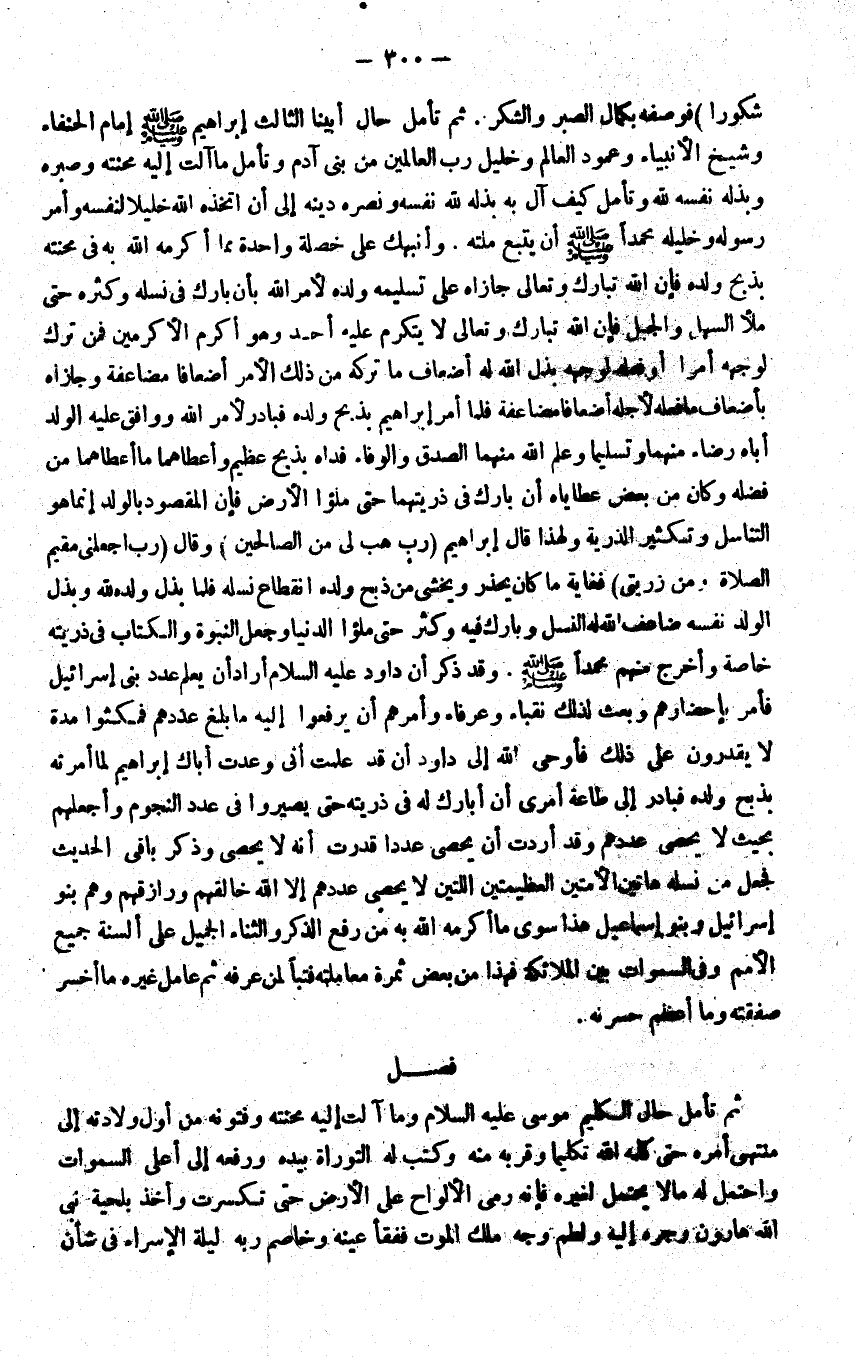 — ٣٠٠ —
شكورا ) فوصفه بكمال الصبر والشكر . ثم تأمل حال أبينا الثالث إبراهيم ﷺ إمام الحنفاء
وشيخ الأنبياء وعمود العالم وخليل رب العالمين من بنى آدم وتأمل ماآلت إليه محنته وصبره
وبذله نفسه لله وتأمل كيف آل به بذله لله نفسه ونصره دينه إلى أن اتخذه الله خليلا لنفسه وأمر
رسوله وخليله محمداً ﷺ أن يتبع ملته . وأنبهك على خصلة واحدة مما أكرمه الله به فى محنته
بذبح ولده فإن الله تبارك وتعالى جازاه على تسليمه ولده لأمر الله بأن بارك فى نسله وكثره حتى
ملأ السهل والجبل فإن الله تبارك وتعالى لا يتكرم عليه أحد وهو أكرم الأكرمين فمن ترك
لوجهه أمرا أو فعله لوجهه بذل الله له أضعاف ما تركه من ذلك الأمر أضعافا مضاعفة وجازاه
بأضعاف مافعله لأجله أضعافا مضاعفة فلما أمر إبراهيم بذبح ولده فبادر لأمر الله ووافق عليه الولد
أباه رضاء منهما وتسليما وعلم الله منهما الصدق والوفاء فداه بذبح عظيم وأعطاهما ماأعطاهما من
فضله وكان من بعض عطاياه أن بارك فى ذريتهما حتى ملؤا الأرض فإن المقصود بالولد إنماهو
التناسل وتكثير الذرية ولهذا قال إبراهيم (رب هب لى من الصالحين ) وقال (رب اجعلنى مقيم
الصلاة ومن ذريتى) فغاية ما كان يحذر ويخشى من ذبح ولده انقطاع نسله فلما بذل ولده لله وبذل
الولد نفسه ضاعف الله له النسل وبارك فيه وكثر حتى ملؤا الدنيا وجعل النبوة والكتاب فى ذريته
خاصة وأخرج منهم محمداً ﷺ . وقد ذكر أن داود عليه السلام أراد أن يعلم عدد بنى إسرائيل
فأمر بإحضارهم وبعث لذلك نقباء وعرفاء وأمرهم أن يرفعوا إليه مابلغ عددهم فمكثوا مدة
لا يقدرون على ذلك فأوحى الله إلى داود أن قد علمت أنى وعدت أباك إبراهيم لما أمرته
بذبح ولده فبادر إلى طاعة أمرى أن أبارك له فى ذريته حتى يصيروا فى عدد النجوم وأجعلهم
بحيث لا يحصى عددهم وقد أردت أن يحصى عددا قدرت أنه لا يحصى وذكر باقى الحديث
فجعل من نسله هاتين الأمتين العظيمتين اللتين لا يحصى عددهم إلا الله خالقهم ورازقهم وهم بنو
إسرائيل وبنو إسماعيل هذا سوى ماأكرمه الله به من رفع الذكر والثناء الجميل على ألسنة جميع
الأمم وفى السموات بين الملائكة فهذا من بعض ثمرة معاملته فتباً لمن عرفه ثم عامل غيره ماأخسر
صفقته وما أعظم حسرته .
فصل
ثم تأمل حال الكليم موسى عليه السلام وما آلت إليه محنته وفتونه من أول ولادته إلى
منتهى أمره حتى كلمه الله تكليما وقربه منه وكتب له التوراة بيده ورفعه إلى أعلى السموات
واحتمل له مالا يحتمل لغيره فإنه رمى الألواح على الأرض حتى تكسرت وأخذ بلحية نبى
الله هارون وجره إليه ولطم وجه ملك الموت ففقأ عينه وخاصم ربه ليلة الإسراء فى شأن